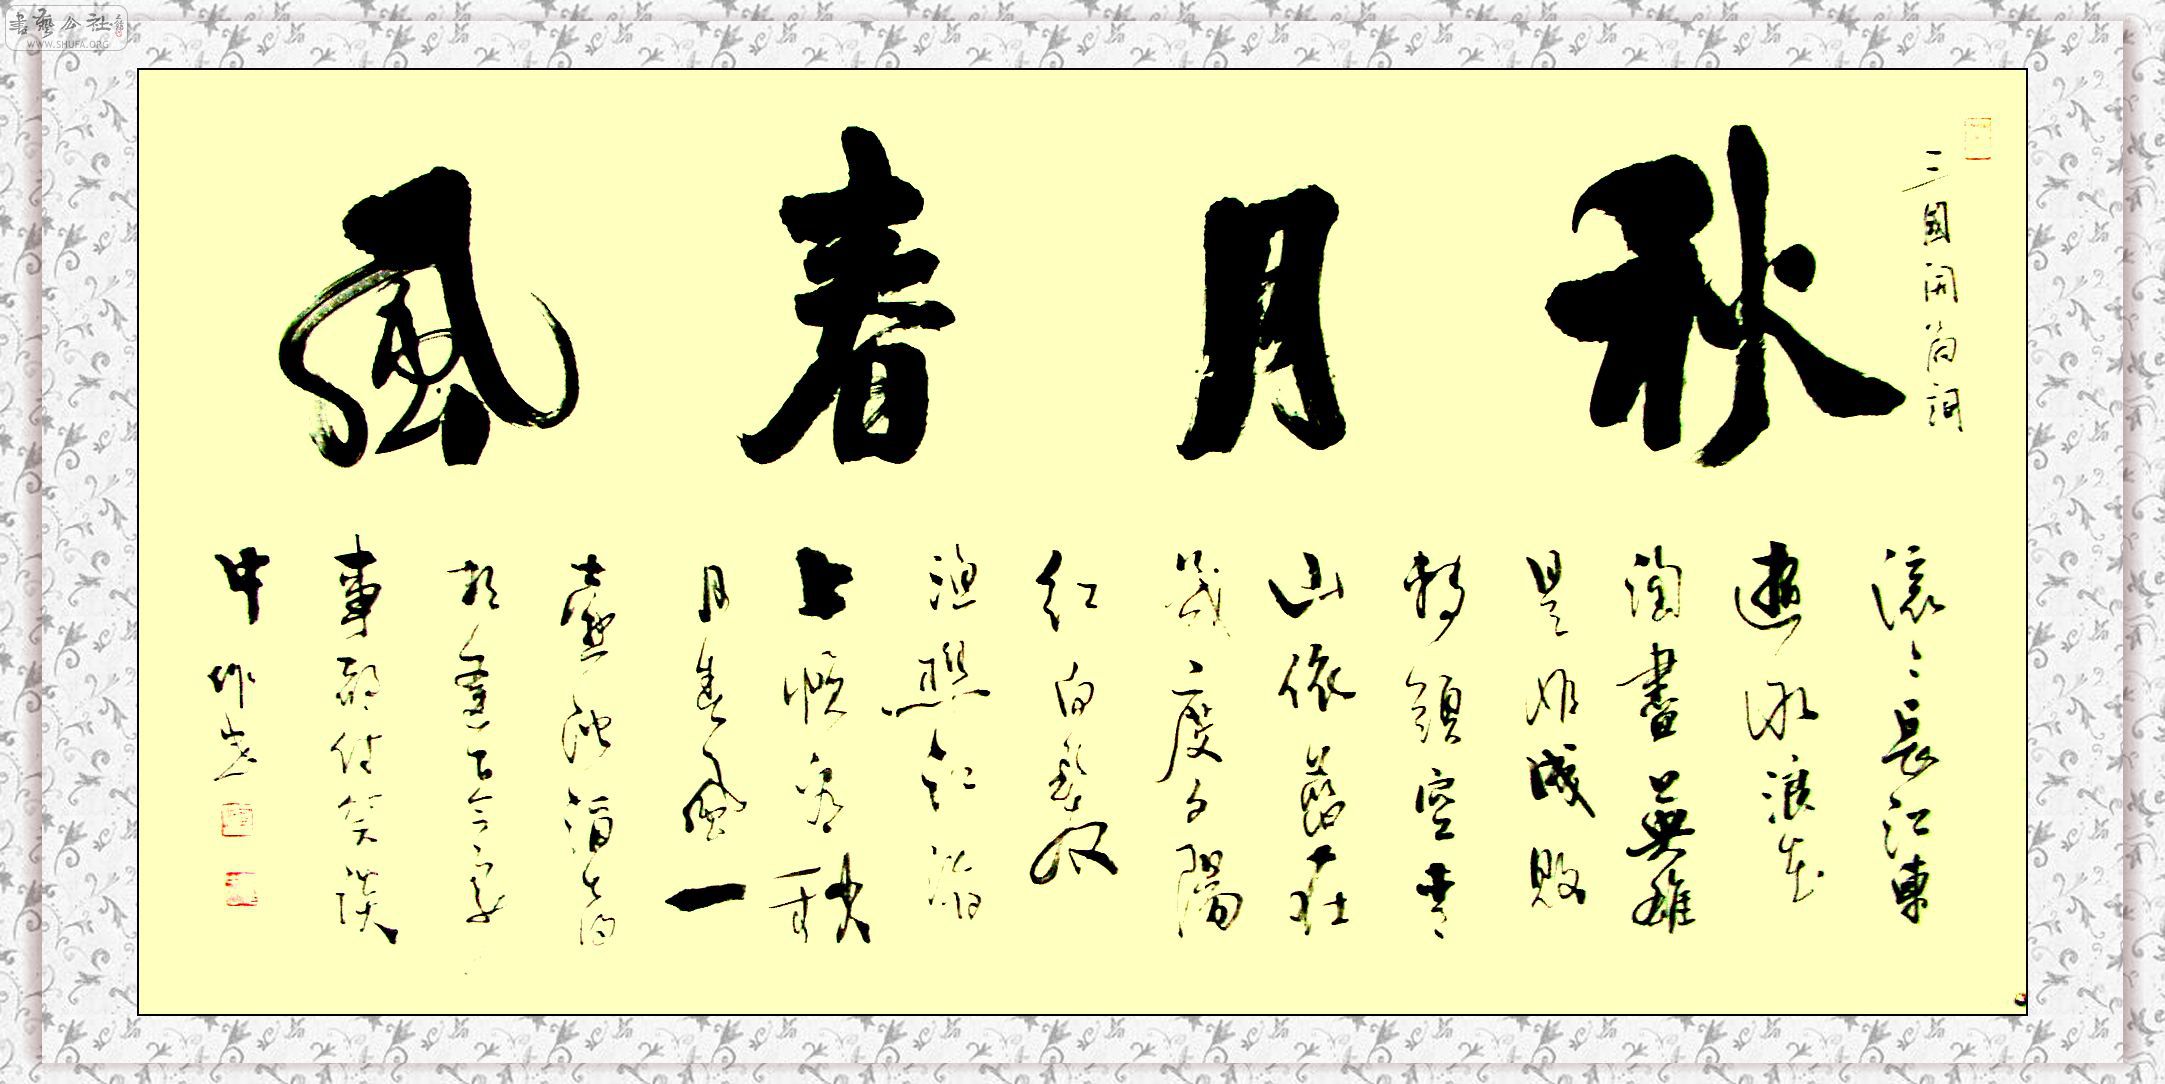 秋月春風
三国開篇詞
滚々長江東
逝水浪花
淘盡英雄
是非成敗
轉頭空青
山依舊在
幾度夕陽
紅白髮
漁樵江渚
上慣看秋
月春風一
壺濁酒喜
相逢古今多少
事都付笑談
中
書藝公社
WWW.SHUFA.ORG